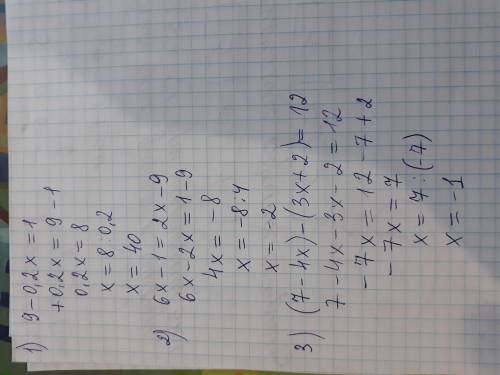 1) 9 - 0,2x = 1
+0,2x = 9 - 1
0,2x = 8
x = 8 : 0,2
x = 40
2) 6x - 1 = 2x - 9
6x - 2x = 1 - 9
4x = -8
x = -8 : 4
x = -2
3) (7 - 4x) - (3x + 2) = 12
7 - 4x - 3x - 2 = 12
-7x = 12 - 7 + 2
-7x = 7
x = 7 : (-7)
x = -1